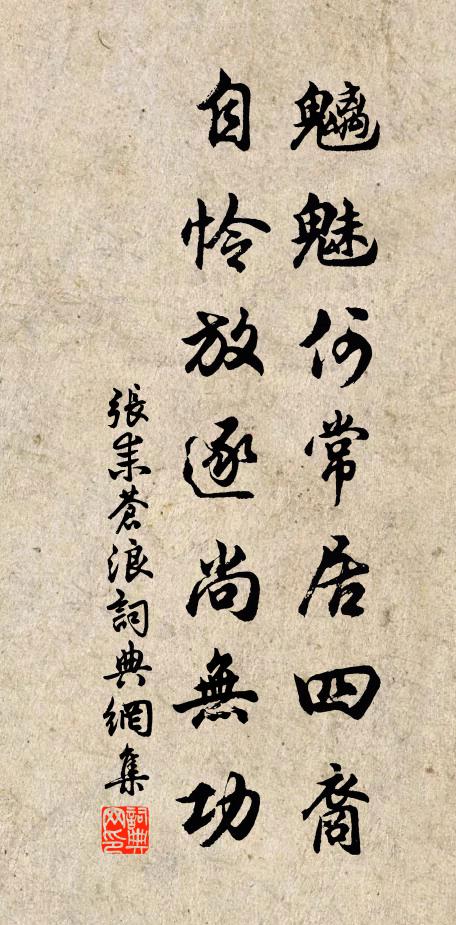 魑魅何常居四裔
自怜放逐尚無功
張耒蒼浪詞典網集
詞典網印